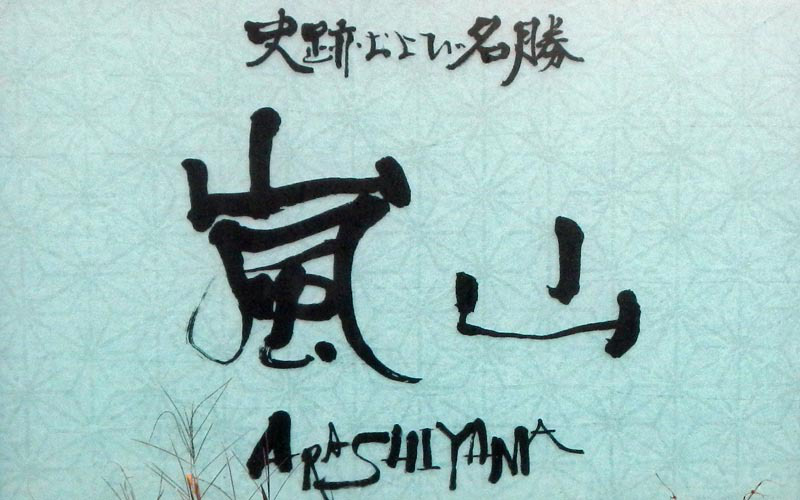 史跡・および名勝
嵐山
ARASHIYAMA